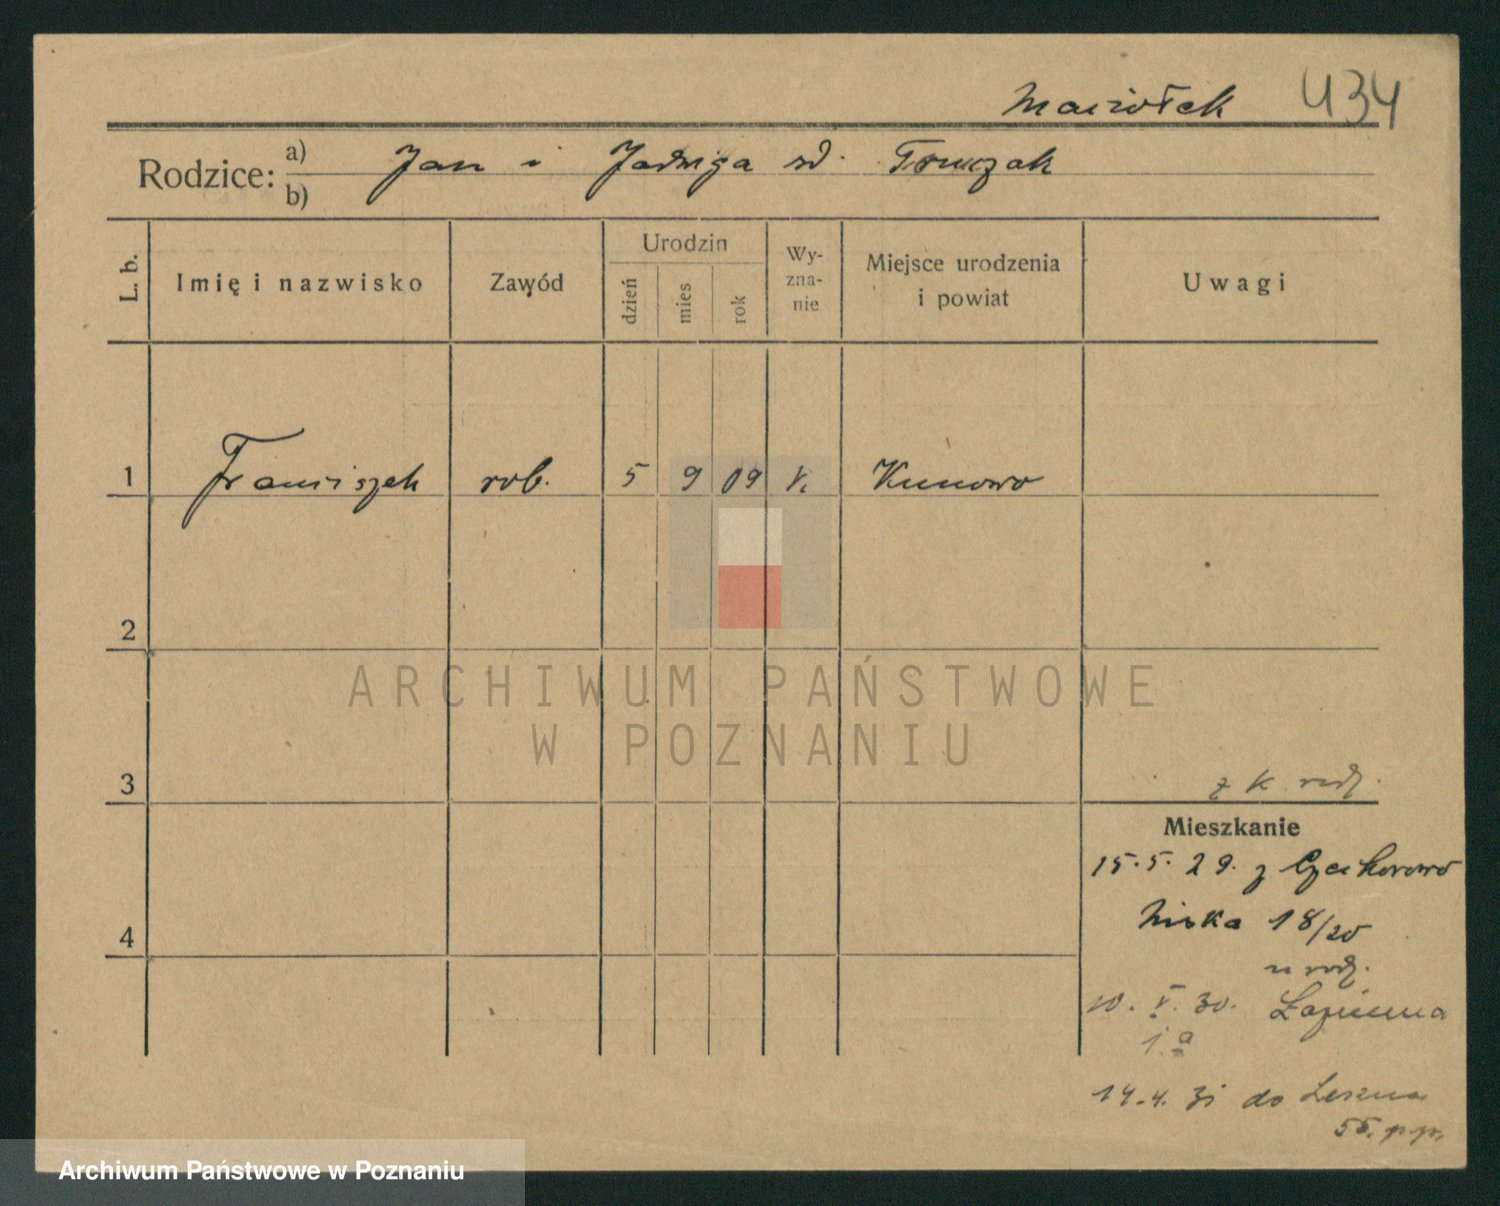 Maciołek 434
Rodzice: a) b) Jan i Jadwiga zd. Tomczak
L. b. Imię i nazwisko Zawód Urodzin dzień mies rok Wy-zna-nie Miejsce urodzenia i powiat Uwagi
1 Franciszek rob. 5 9 09 k. Kunowo
2
ARCHIWUM PAŃSTWOWE
W POZNANIU
3
z k. rodz.
Mieszkanie
15.5.29. z
Niska 18/20
4
u rodz.
10. V. 30. Łazienna
1a
14.4.31 do Leszna
55. p.p.
Archiwum Państwowe w Poznaniu